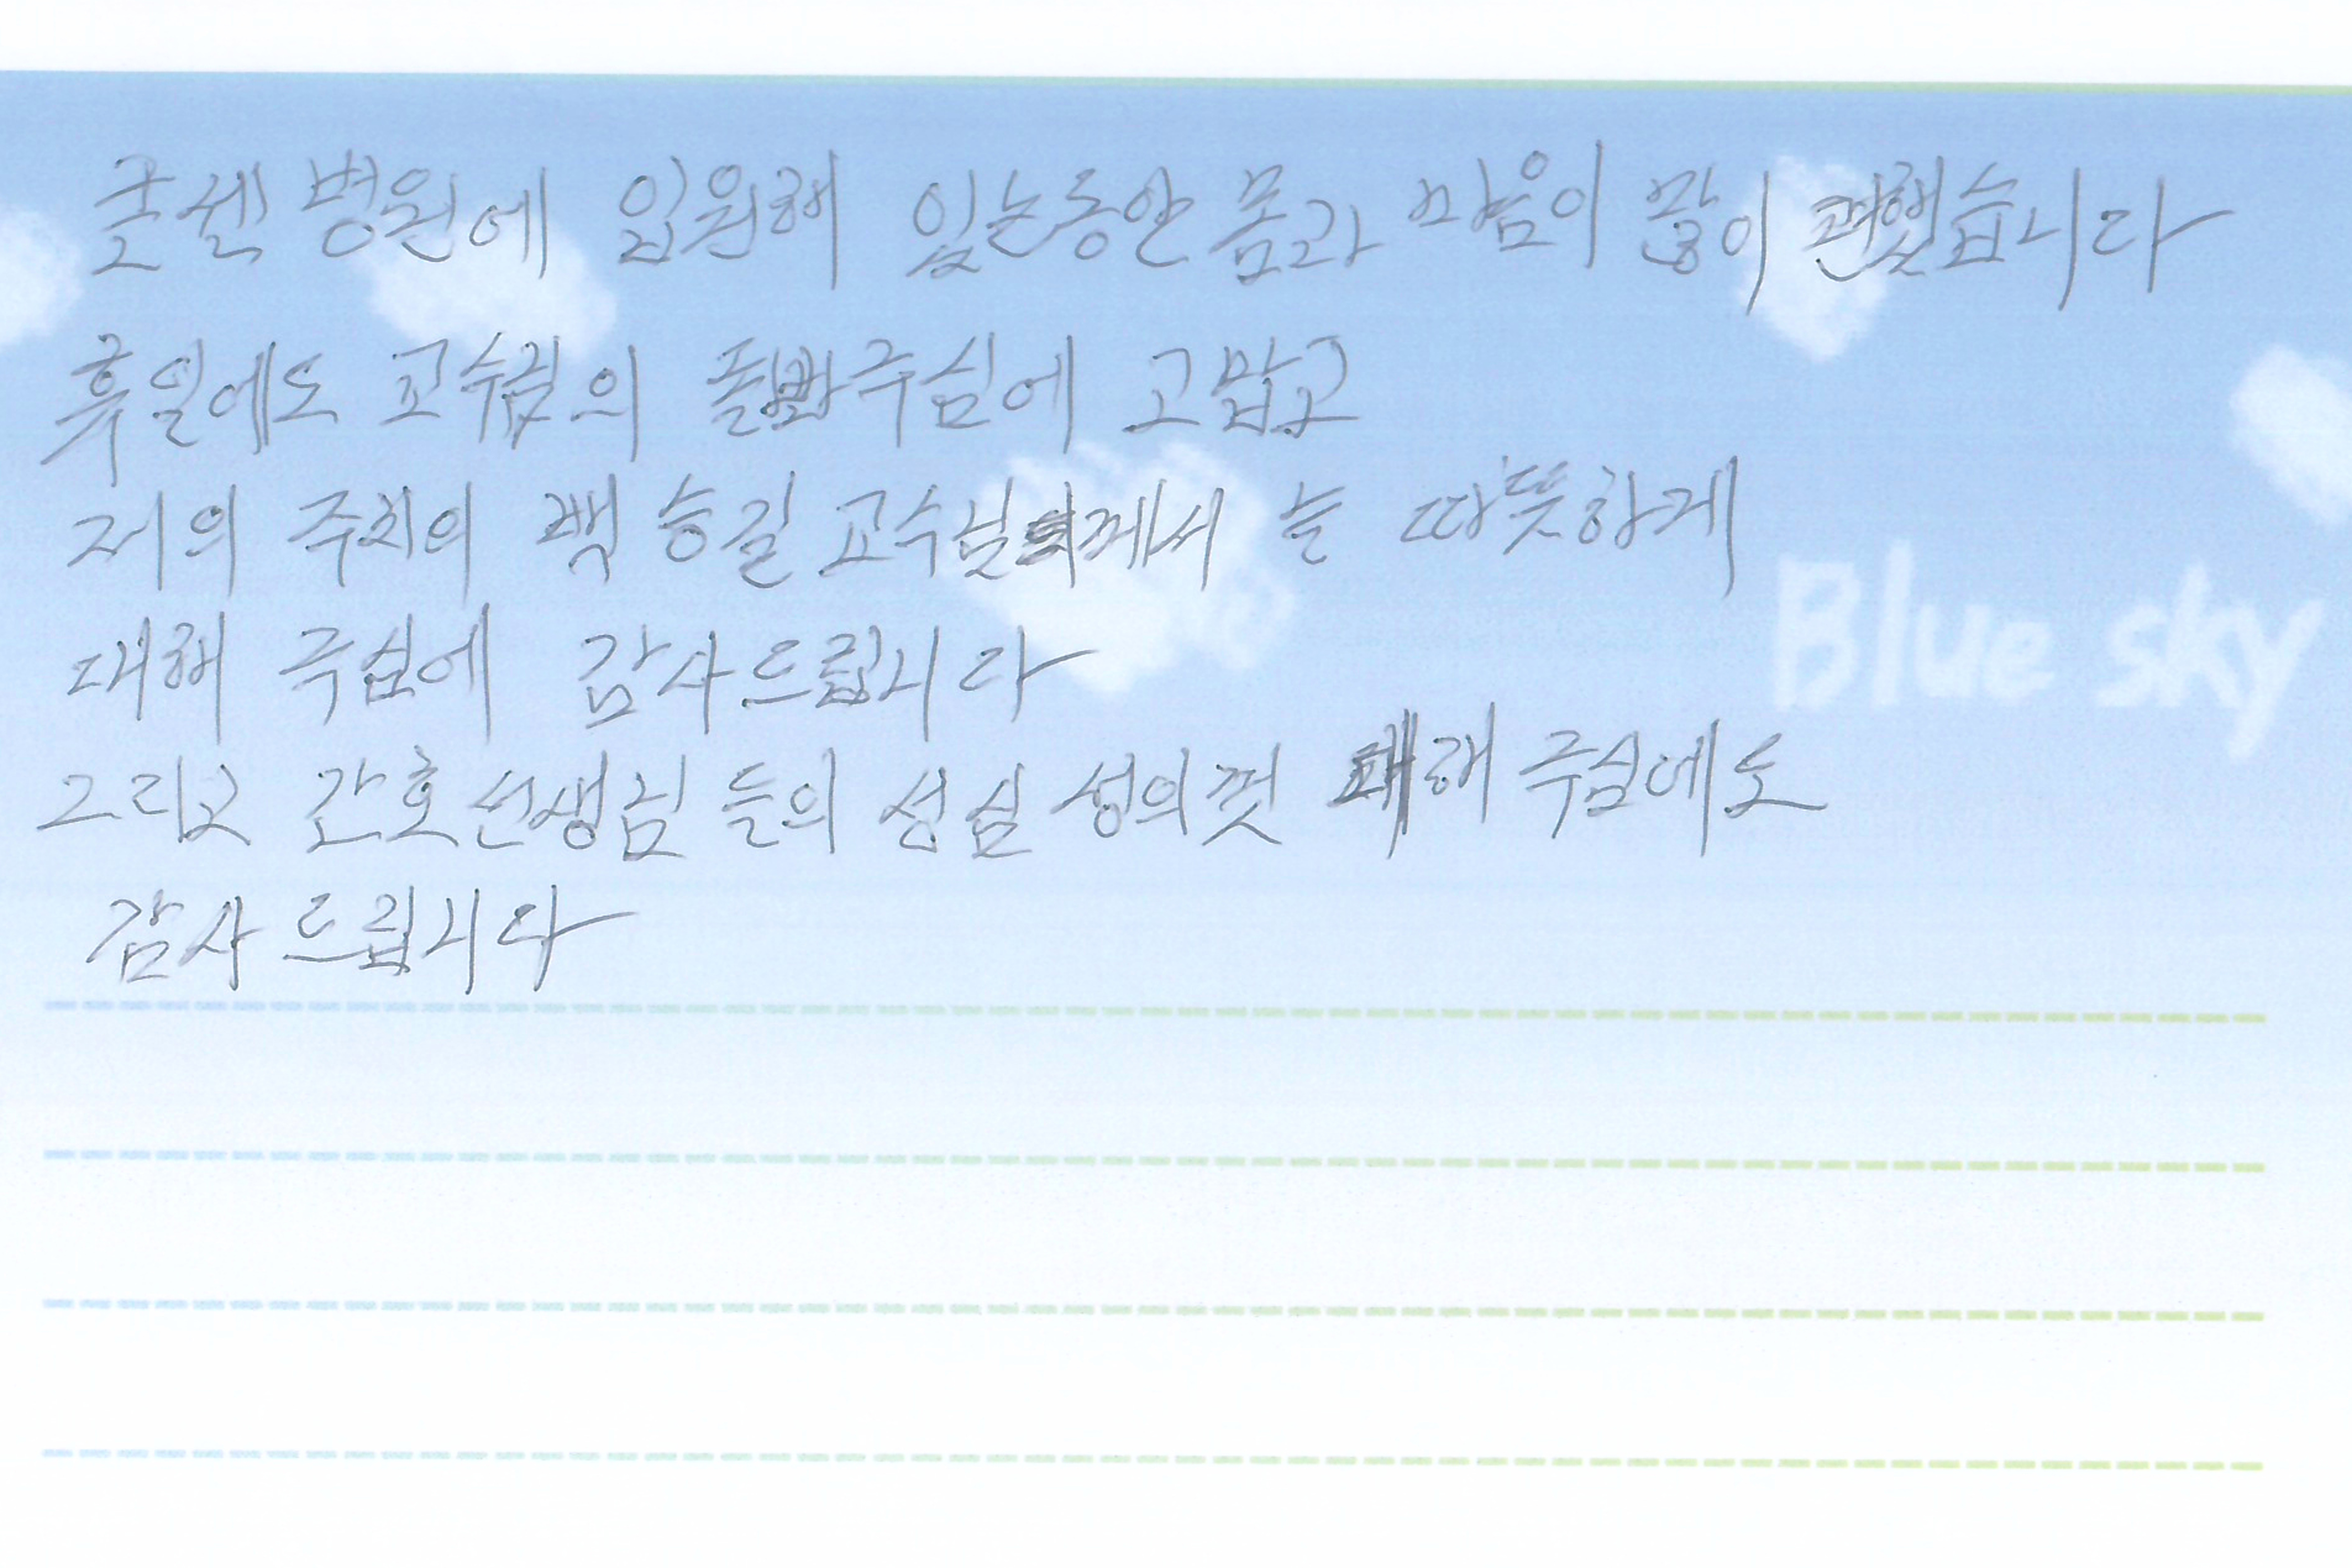 굳센 병원에 입원해 있는동안 몸과 마음이 많이 편했습니다
휴일에도 교수님의 돌봐주심에 고맙고
저의 주치의 백승길 교수님께서 늘 따뜻하게
대해 주심에 감사드립니다
Blue sky
그리고 간호선생님들의 성심 성의껏 대해 주심에도
감사드립니다